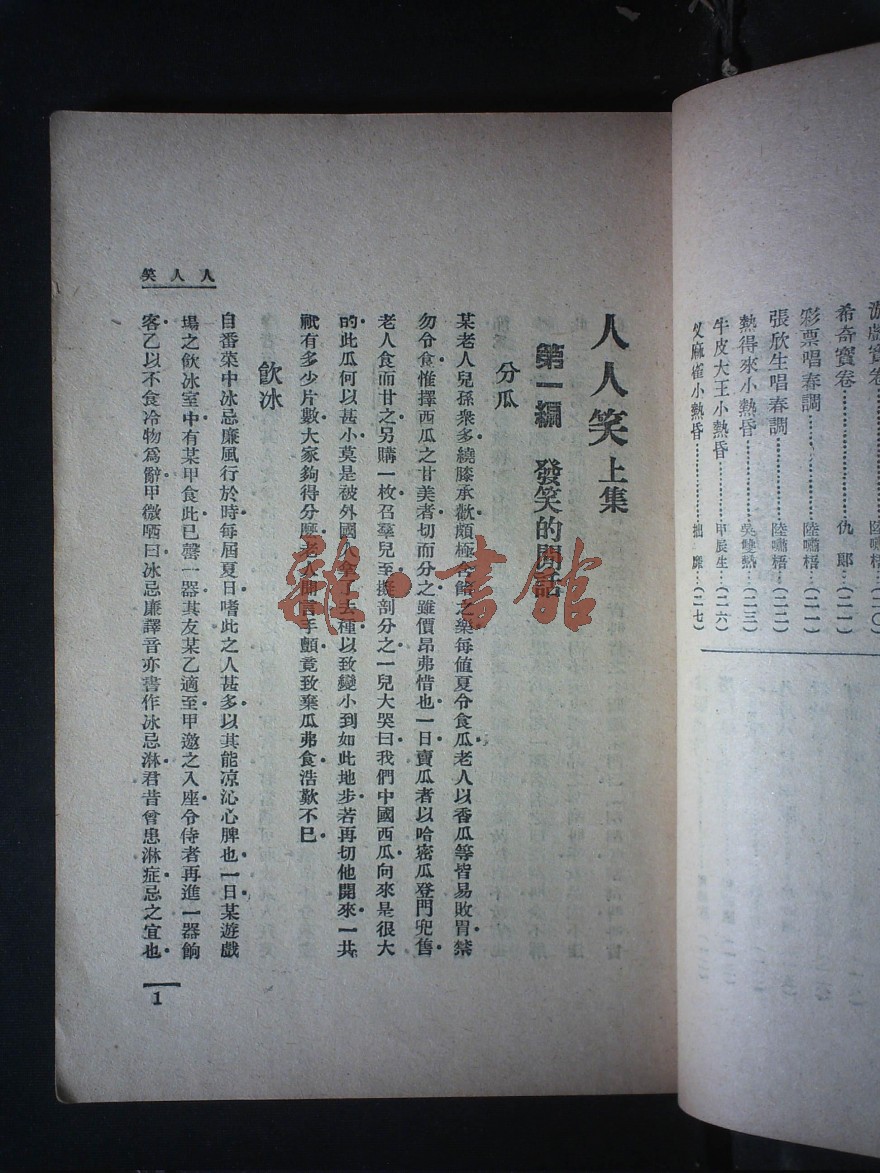 希奇寶卷 仇郎 (二一)
彩票唱春調 陸嘯梧 (二一)
張欣生唱春調 陸嘯梧 (二二)
熱得來小熱昏 (二三)
牛皮大王小熱昏 甲辰生 (二六)
叉麻雀小熱昏 (二七)
人人笑 上集
第一編 發笑的閒話
分瓜
某老人兒孫衆多繞膝承歡頗極含飴之樂每值夏令食瓜老人以香瓜等皆易敗胃禁
勿令食惟擇西瓜之甘美者切而分之雖價昂弗惜也一日賣瓜者以哈密瓜登門兜售
老人食而甘之另購一枚召羣兒至擬剖分之一兒大哭曰我們中國西瓜向來是很大
的此瓜何以甚小莫是被外國人拿了去種以致變小到如此地步若再切他開來一共
祇有多少片數大家夠得分麼老人聞言手顫竟致棄瓜弗食浩歎不已
飲冰
自番菜中冰忌廉風行於時每屆夏日嗜此之人甚多以其能凉沁心脾也一日某遊戲
塲之飲冰室中有某甲食此已罄一器其友某乙適至甲邀之入座令侍者再進一器餉
客乙以不食冷物爲辭甲微哂曰冰忌廉譯音亦書作冰忌淋君昔曾患淋症忌之宜也
人人笑
1
雜·書館